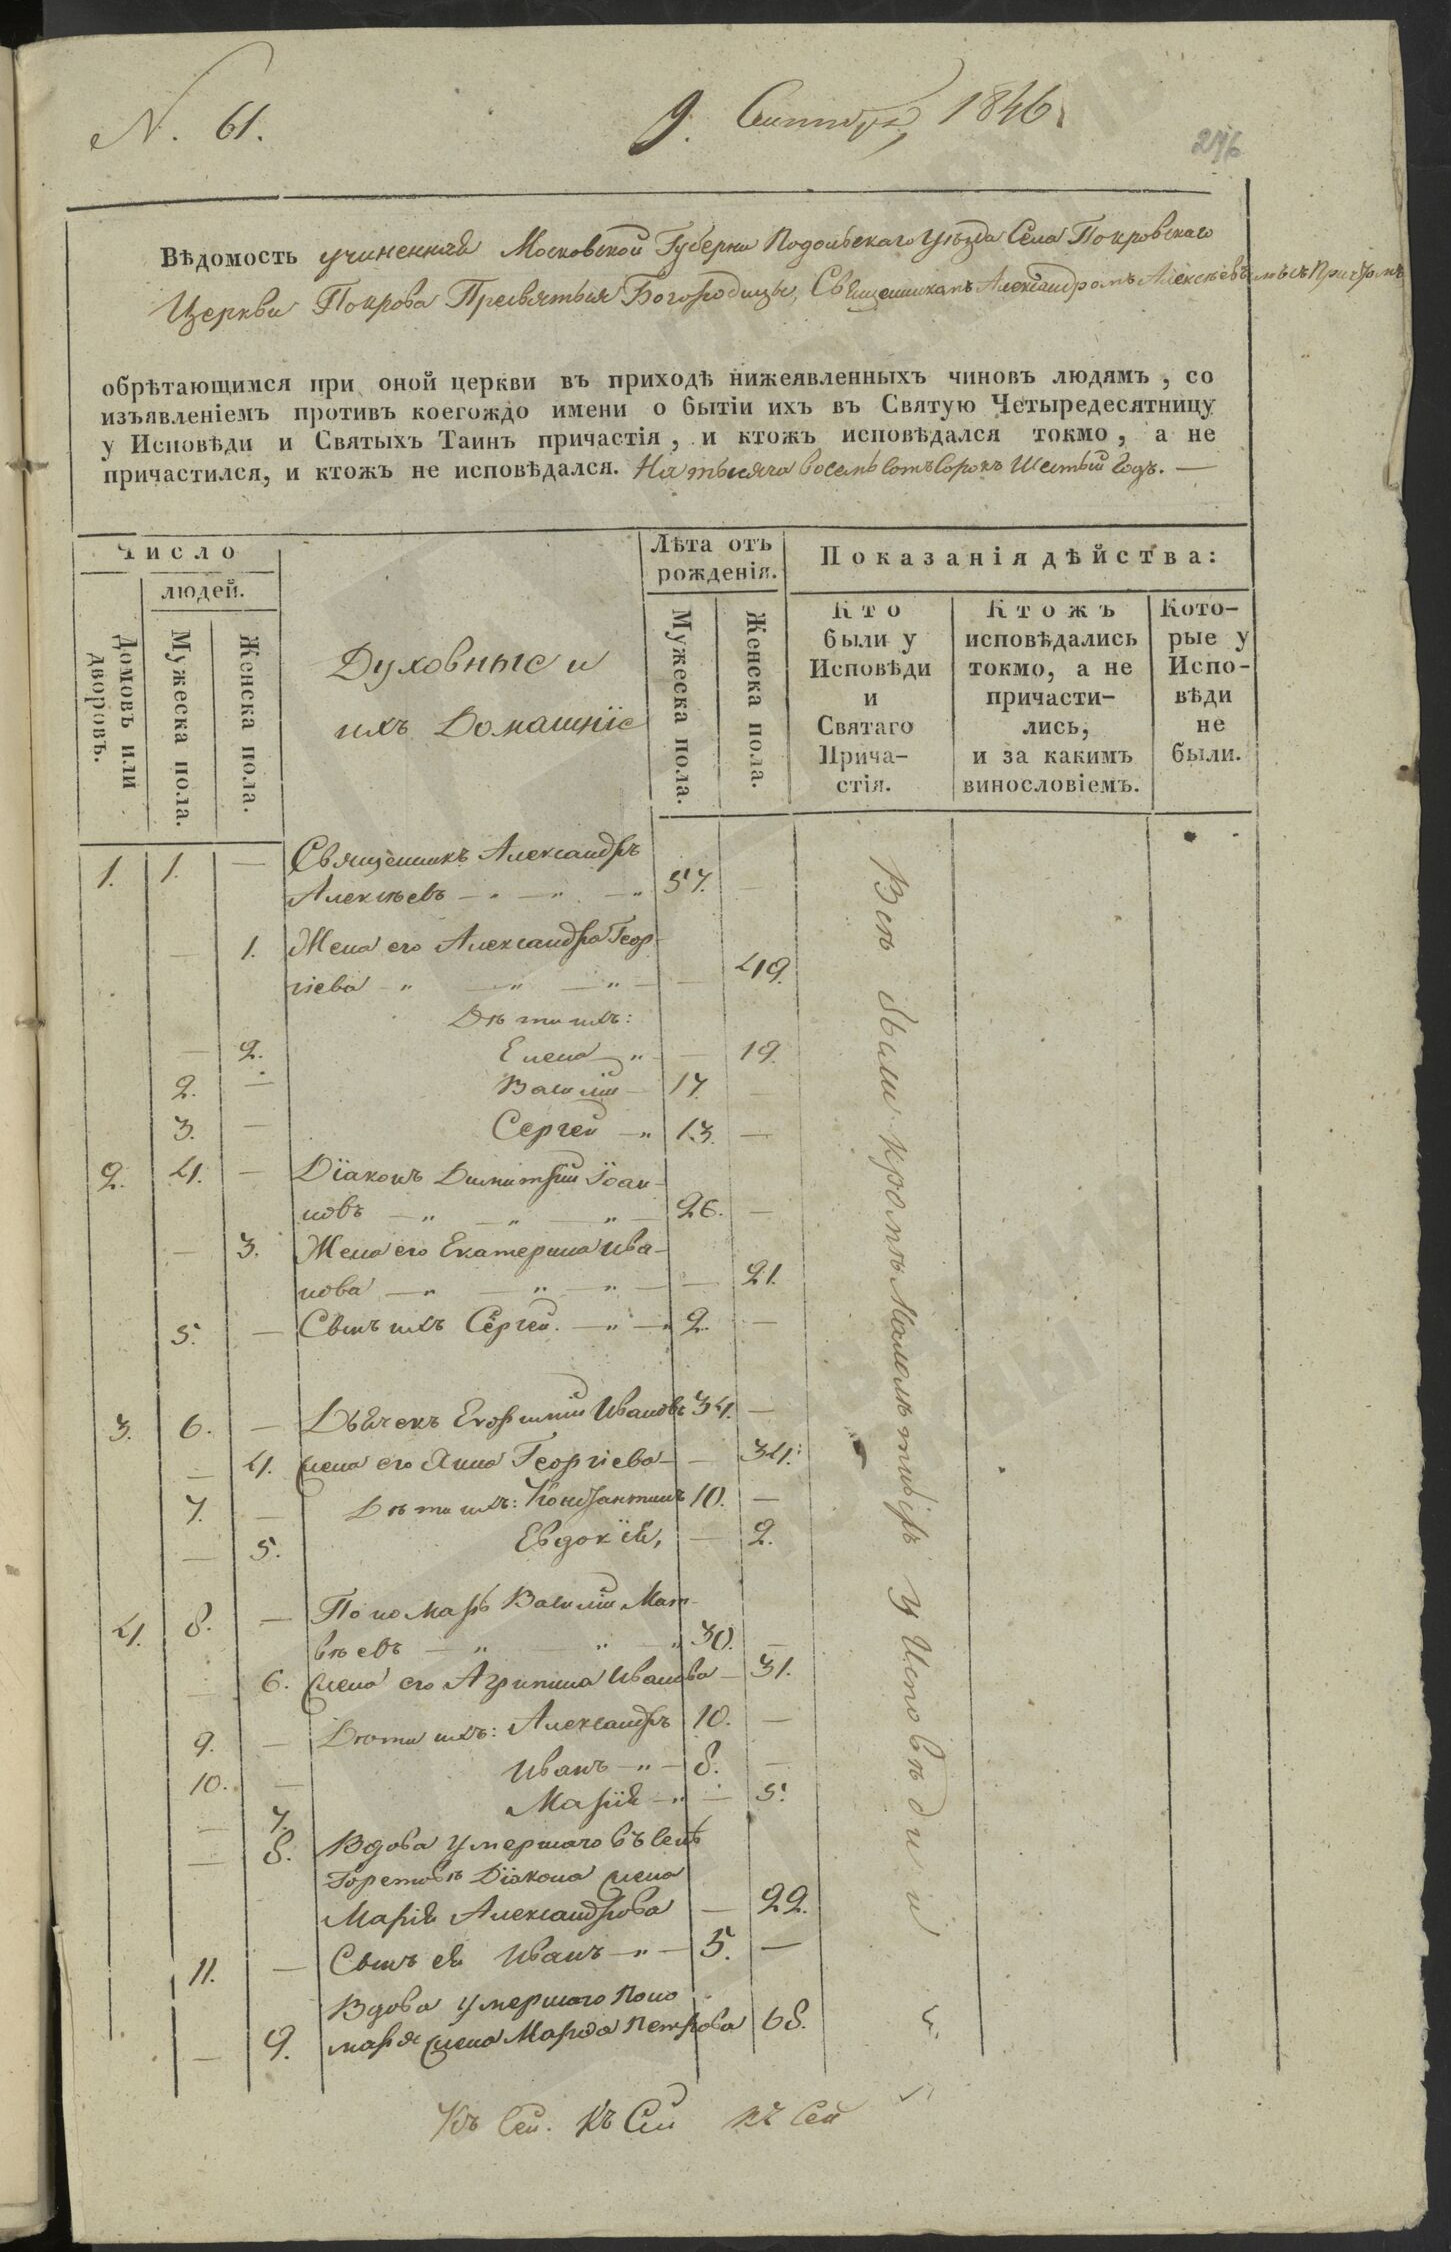 N. 61.
9. Сентября 1846
246
Вѣдомость учиненная Московской Губерніи Подольскаго Уѣзда Села Покровскаго
Церкви Покрова Пресвятыя Богородицы, Священникомъ Александромъ Алексѣевымъ съ Причтомъ
обрѣтающимся при оной церкви въ приходѣ нижеявленныхъ чиновъ людямъ, со
изъявленіемъ противъ коегождо имени о бытіи ихъ въ Святую Четыредесятницу
у Исповѣди и Святыхъ Таинъ причастія, и ктожъ исповѣдался токмо, а не
причастился, и ктожъ не исповѣдался. На тысяча восемь сотъ сорокъ Шестый годъ. —
Число
людей.
Домовъ или дворовъ.
Мужеска пола.
Женска пола.
Духовные и
ихъ Домашніе
Лѣта отъ
рожденія.
Мужеска пола.
Женска пола.
Показанія дѣйства:
Кто
были у
Исповѣди
и
Святаго
Прича-
стія.
Ктожъ
исповѣдались
токмо, а не
причасти-
лись,
и за какимъ
винословіемъ.
Кото-
рые у
Испо-
вѣди
не
были.
1. 1. — Священникъ Александръ
Алексѣевъ — „ — „ — „ 57. —
— 1. Жена его Александра Геор-
гіева — „ — „ — „ — — 49.
Дѣти ихъ:
— 2. Елена „ — 19.
2. — Василій — 17. —
3. — Сергей — „ 13. —
2. 4. — Діаконъ Димитрій Іоан-
новъ — „ — „ — „ — 26. —
— 3. Жена его Екатерина Ива-
нова — „ — „ — „ — — 21.
5. — Сынъ ихъ Сергей. — „ — „ 2. —
3. 6. — Дьячекъ Ивановъ 34. —
— 4. Жена его Анна Георгіева — — 34.
7. — Дѣти ихъ: Константинъ 10. —
— 5. Евдокія, — 2.
4. 8. — Пономарь Василій Мат-
вѣевъ — „ — „ — „ 30. —
— 6. Жена его Агрипина Иванова — 31.
9. — Дѣти ихъ: Александръ 10. —
10. — Иванъ — „ — 8. —
— 7. Марія — „ — 5.
— 8. Вдова умершаго въ селѣ
Горетовѣ Діакона жена
Марія Александрова — 22.
11. — Сынъ ея Иванъ — „ — 5. —
Вдова умершаго поно
— 9. маря жена Марфа Петрова 68.
Всѣ были кромѣ Малолѣтнихъ у Исповѣди и
Къ Сей. Къ Сей Къ Сей